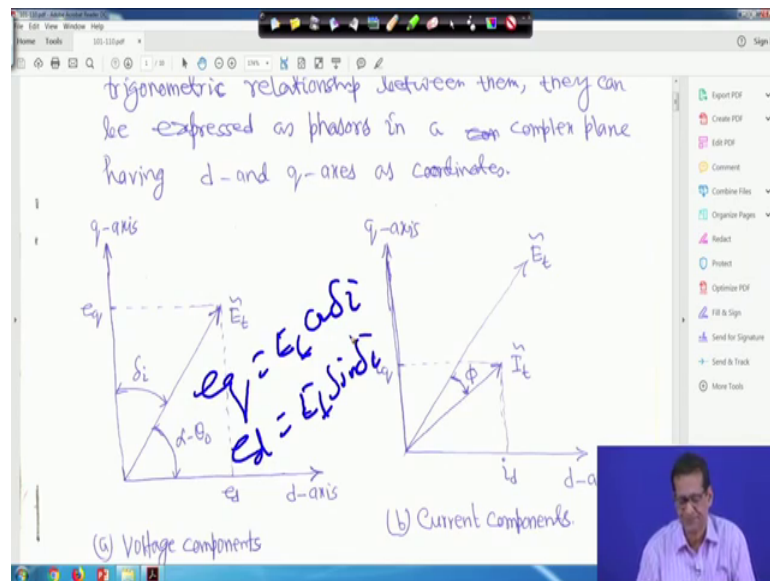 101-110.pdf - Adobe Acrobat Reader DC
File Edit View Window Help
Home Tools 101-110.pdf × Sign
trigonometric relationship between them, they can
be expressed as phasors in a complex plane
having d-and q-axes as coordinates.
q-axis
e_q
Ẽ_t
δi
α-θ₀
e_d
d-axis
(a) Voltage components
e_q = E_t cos δi
e_d = E_t sin δi
q-axis
Ẽ_t
i_q
φ
Ĩ_t
i_d
d-a
(b) Current components.
Export PDF
Create PDF
Edit PDF
Comment
Combine Files
Organize Pages
Redact
Protect
Optimize PDF
Fill & Sign
Send for Signature
Send & Track
More Tools